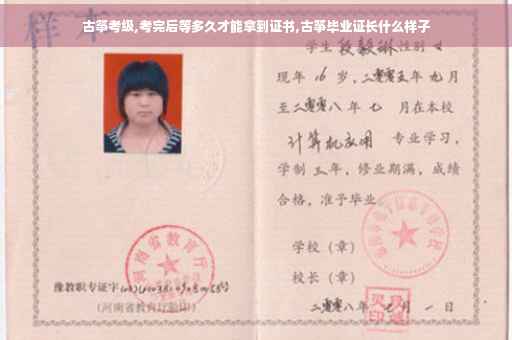 古筝考级,考完后等多久才能拿到证书,古筝毕业证长什么样子
样本
学生 段毅琳 性别 女
现年 16 岁,二零零五年 九月
至二零零八年 七 月在本校
计算机应用 专业学习,
学制 三 年, 修业期满, 成绩
合格, 准予毕业
学校(章)
校长(章)
二零零八年 月 一 日
河南省教育厅
豫教职专证字
(河南省教育厅验印)